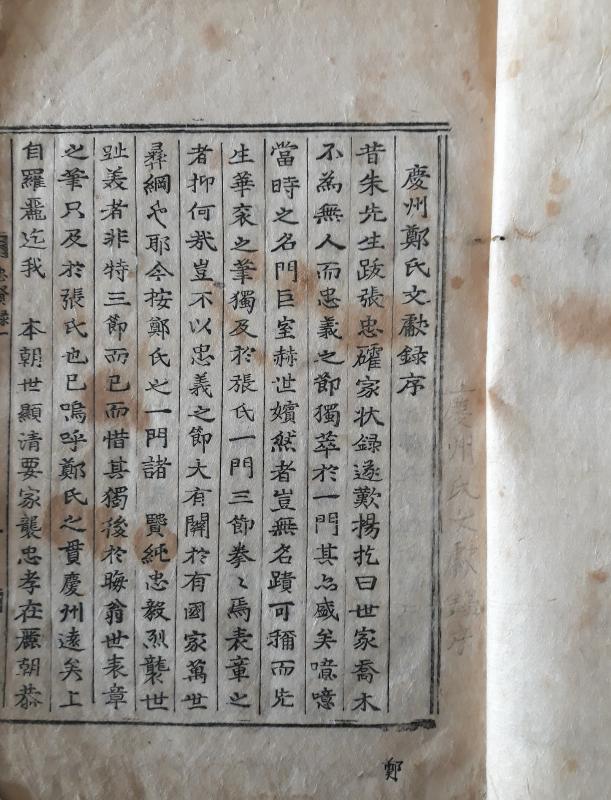 慶州鄭氏文獻録序
昔朱先生跋張忠確家状録遂歎揚扢曰世家喬木
不為無人而忠義之節獨萃於一門其亦盛矣噫噫
當時之名門巨室赫世嬪然者豈無名蹟可稱而先
生華衮之筆獨及於張氏一門三節拳〻焉表章之
者抑何哉豈不以忠義之節大有關於有國家萬世
彛綱也耶今按鄭氏之一門諸　賢純忠毅烈襲世
趾義者非特三節而已而惜其獨後於晦翁世表章
之筆只及於張氏也已嗚呼鄭氏之貫慶州遠矣上
自羅麗迄我　本朝世顯清要家襲忠孝在麗朝恭
鄭